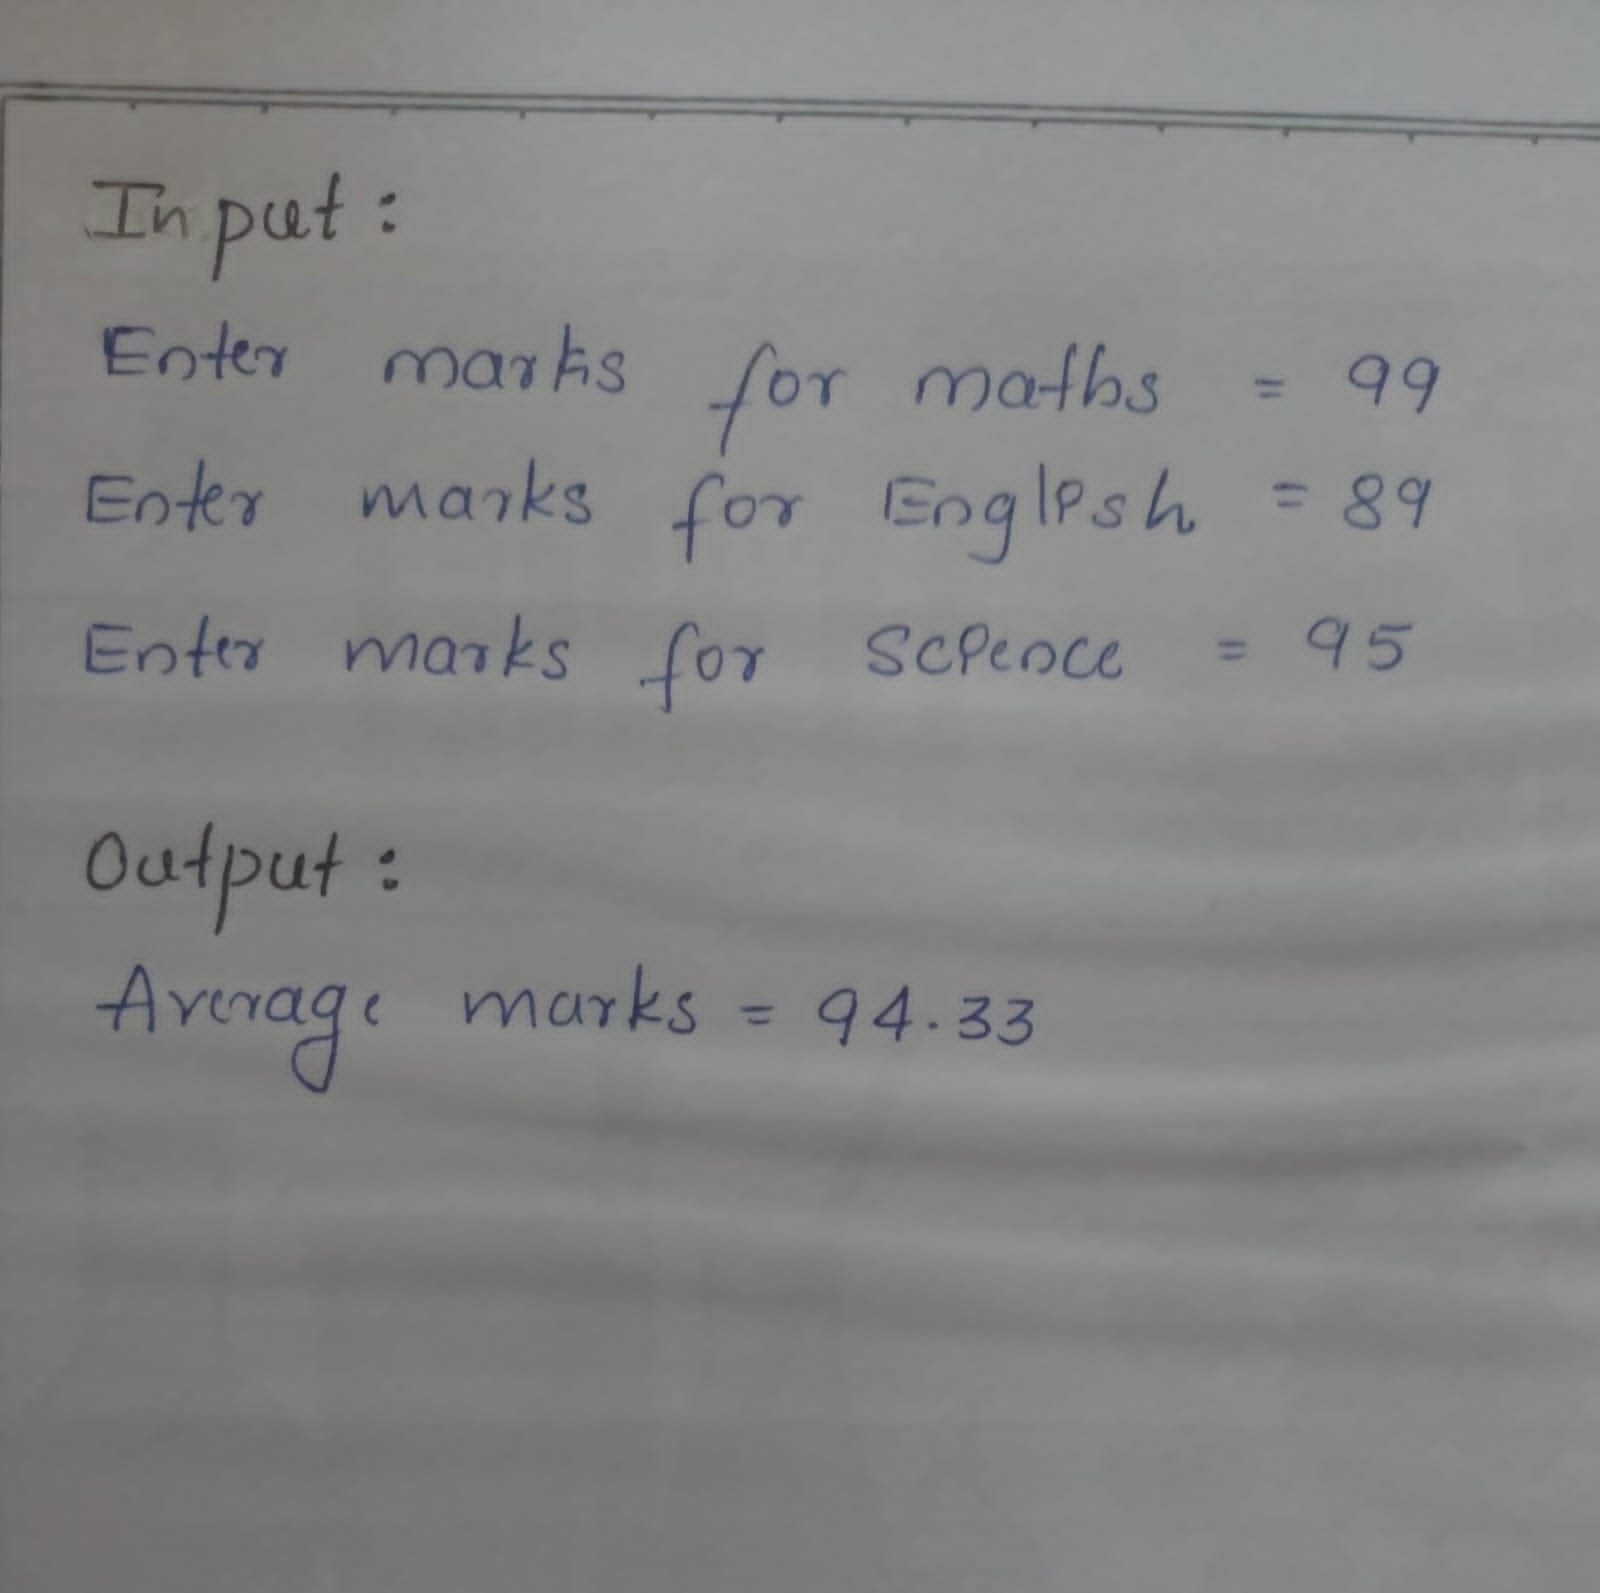 Input :
Enter marks for maths = 99
Enter marks for English = 89
Enter marks for Science = 95
Output :
Average marks = 94.33